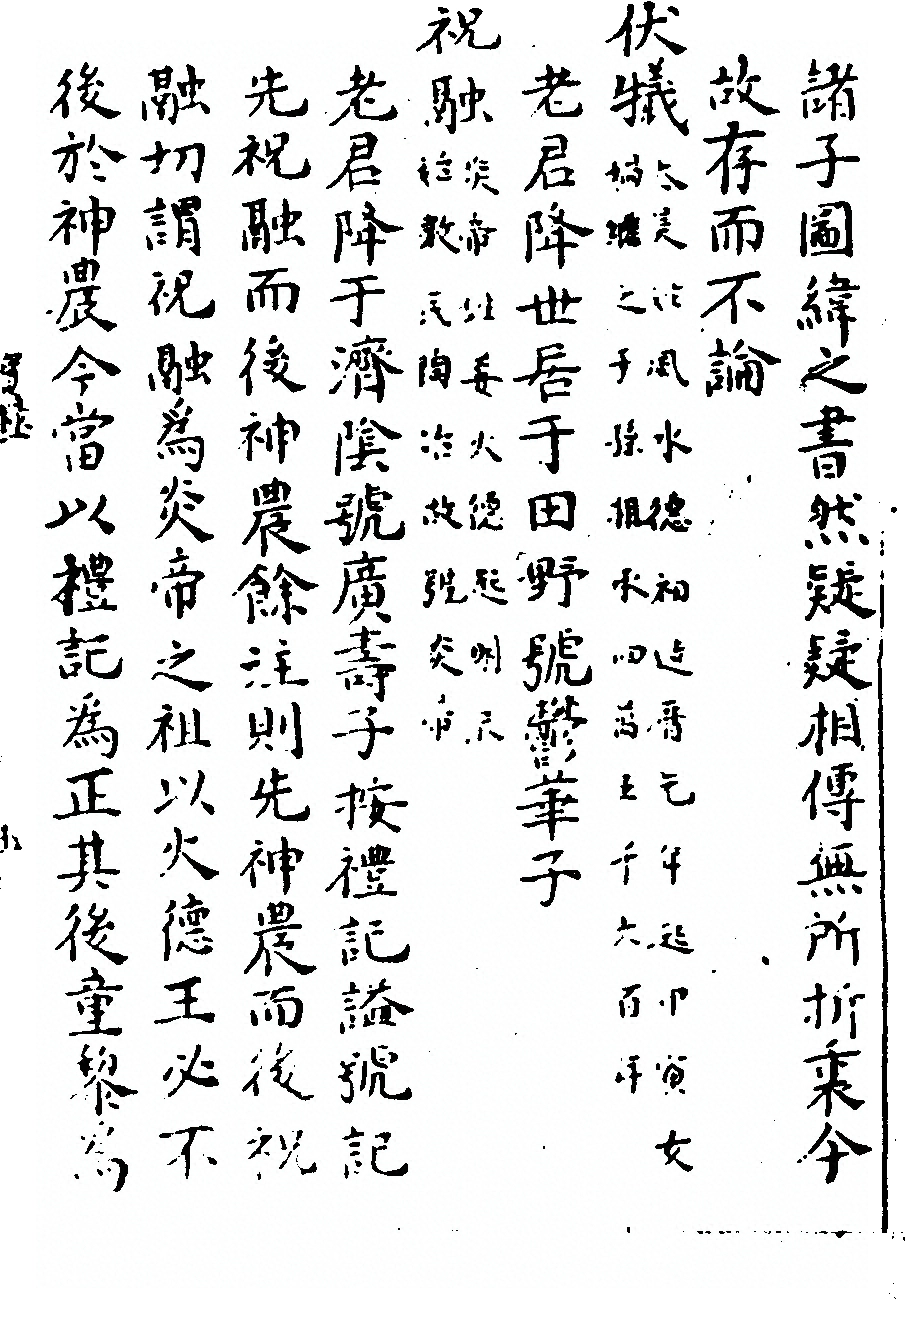 諸子圖緯之書然疑疑相傳無所折衷今
故存而不論
伏犧
太昊治風水德初造曆乞年起甲寅女
媧繼之子孫相承四萬七千六百年
老君降世居于田野號鬱華子
祝融
炎帝姓姜火德起明示
教民陶冶故號炎帝
老君降于濟陰號廣壽子按禮記謚號記
先祝融而後神農餘注則先神農而後祝
融切謂祝融為炎帝之祖以火德王必不
後於神農今當以禮記為正其後童黎為